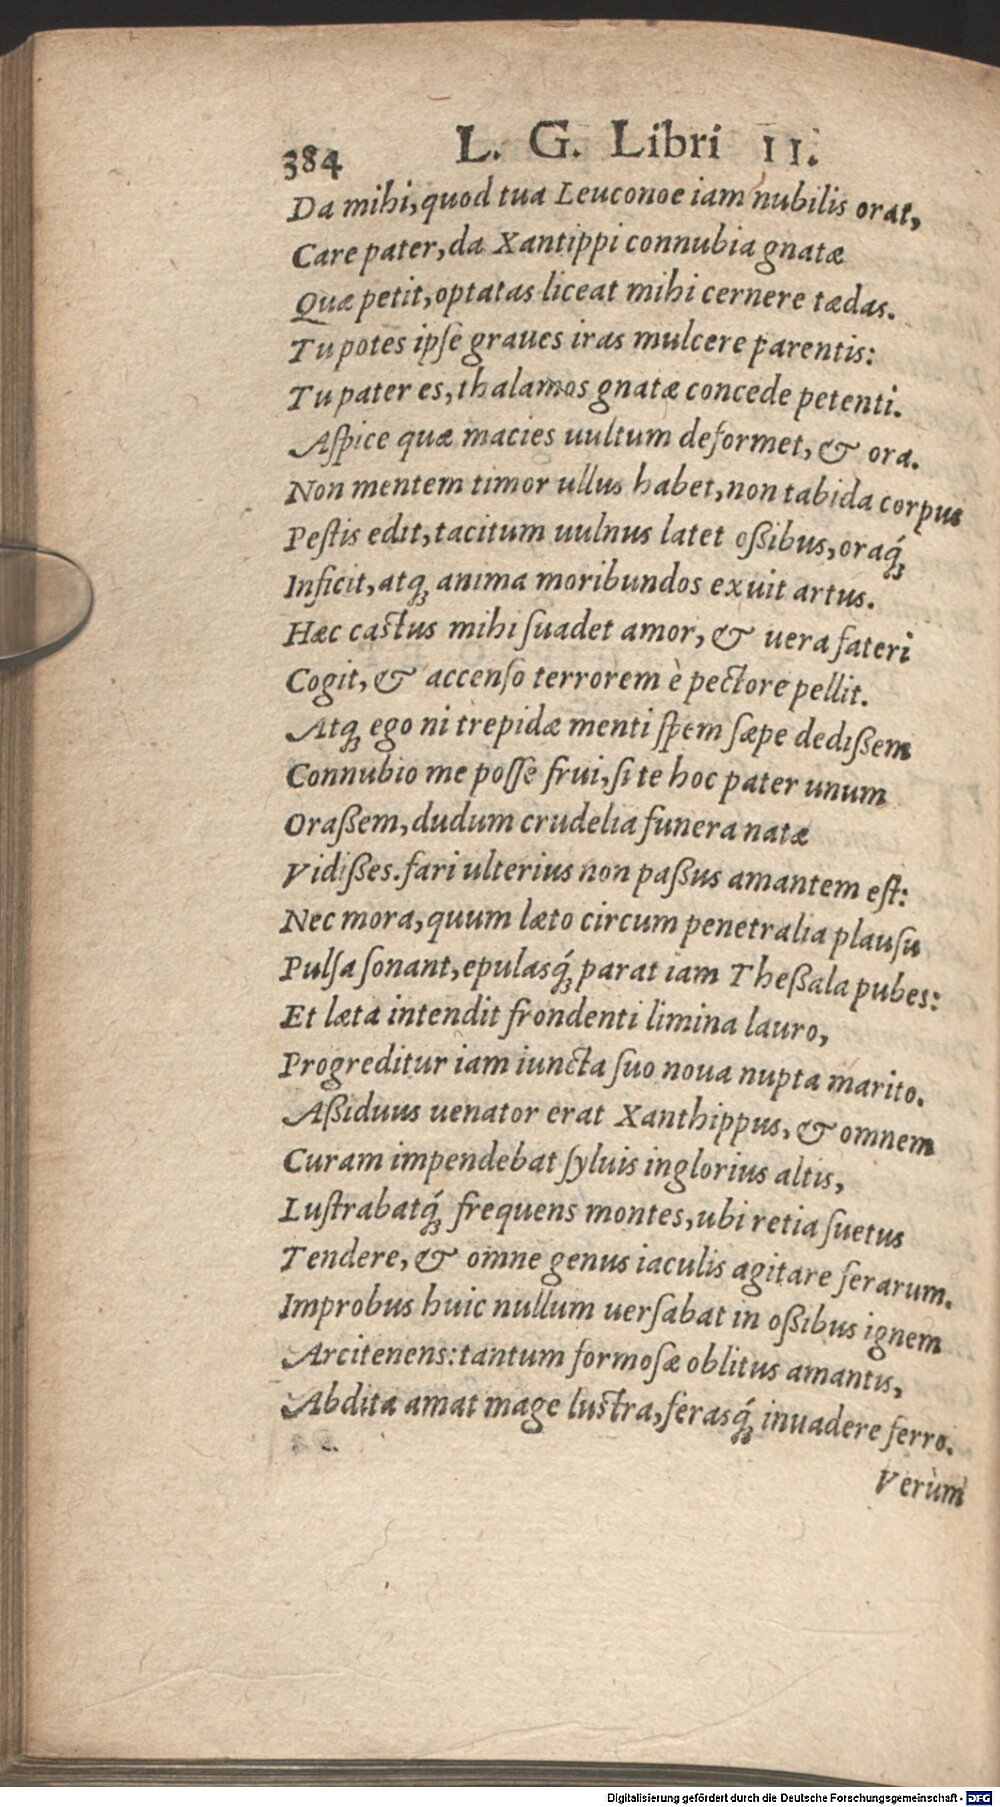 384 L. G. Libri II.
Da mihi, quod tua Leuconoe iam nubilis orat,
Care pater, da Xantippi connubia gnatæ
Quæ petit, optatas liceat mihi cernere tædas.
Tu potes ipſe graues iras mulcere parentis:
Tu pater es, thalamos gnatæ concede petenti.
Aſpice quæ macies uultum deformet, & ora.
Non mentem timor ullus habet, non tabida corpus
Peſtis edit, tacitum uulnus latet oßibus, oraq́;
Inficit, atq; anima moribundos exuit artus.
Hæc caſtus mihi ſuadet amor, & uera fateri
Cogit, & accenſo terrorem è pectore pellit.
Atq; ego ni trepidæ menti ſpem ſæpe dedißem
Connubio me poſſe frui, ſi te hoc pater unum
Oraßem, dudum crudelia funera natæ
Vidißes. fari ulterius non paßus amantem eſt:
Nec mora, quum læto circum penetralia plauſu
Pulſa ſonant, epulasq́; parat iam Theßala pubes:
Et læta intendit frondenti limina lauro,
Progreditur iam iuncta ſuo noua nupta marito.
Aßiduus uenator erat Xanthippus, & omnem
Curam impendebat ſyluis inglorius altis,
Luſtrabatq́; frequens montes, ubi retia ſuetus
Tendere, & omne genus iaculis agitare ferarum.
Improbus huic nullum uerſabat in oßibus ignem
Arcitenens: tantum formoſæ oblitus amantis,
Abdita amat mage luſtra, ferasq́; inuadere ferro.
Verum
Digitalisierung gefördert durch die Deutsche Forschungsgemeinschaft - DFG